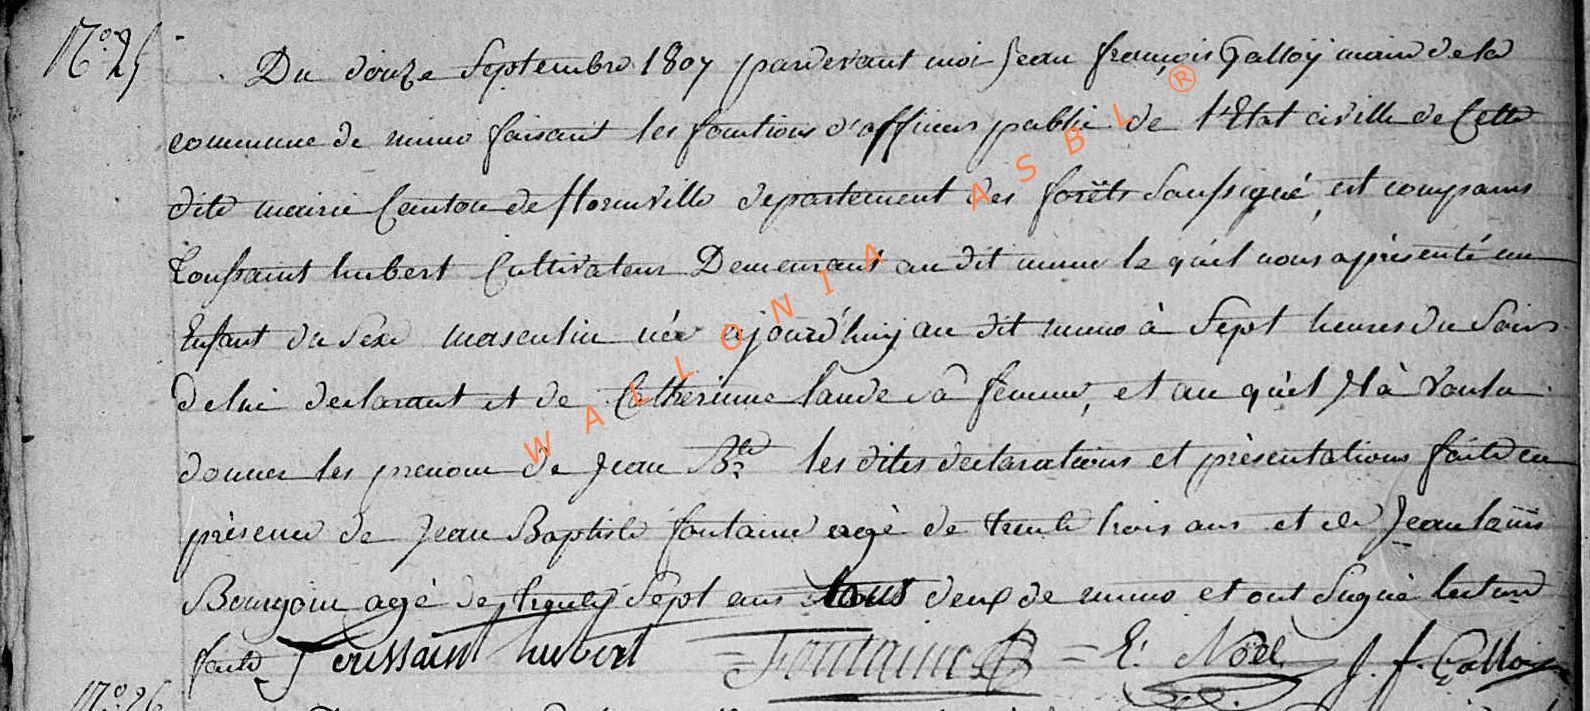 N.° 25
Du douze Septembre 1807 pardevant moi Jean françois Galloÿ maire de la
commune de muno faisant les fonctions d'officiers public de l'Etat civille de Cette
dite mairie Canton de florenville departement des forêts Soussigné, est comparus
Toussaint hubert Cultivateur Demeurant au dit muno le quel nous à présenté un
Enfant du Sexe masculin née ajourd'huÿ au dit muno à Sept heures du Soirs
de lui declarant et de Catherinne lande sà femme, et au quel Il à voulu
donner les prenom de Jean B.te les dites declarations et présentations faite en
présence de Jean Baptiste fontaine agé de trente trois ans et de Jean louis
Bourgoin agé de trente Sept ans tous deux de muno et ont Signé lecture
faite Toussaint hubert Fontaine E. Noël J. f. Galloÿ
N.° 26
WALLONIA ASBL ®